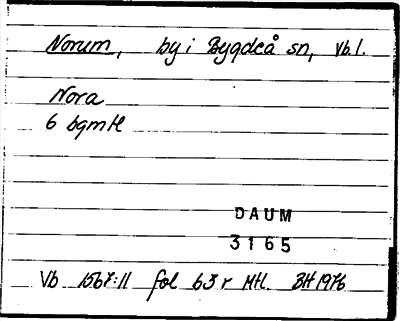 Norum, by i Bygdeå sn, Vb. l.
Nora
6 bgmtl
DAUM
3165
Vb 1567:11 fol 63 r Mtl. BH 1976